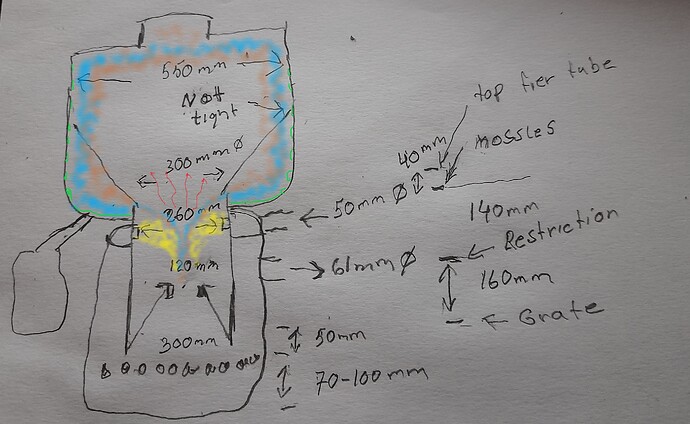 550mm
Nott
tight
300mm Ø
260mm
120mm
300mm
top fier tube
40mm
nossles
50mm Ø
140mm
Restriction
61mm Ø
160mm
Grate
50mm
70-100mm